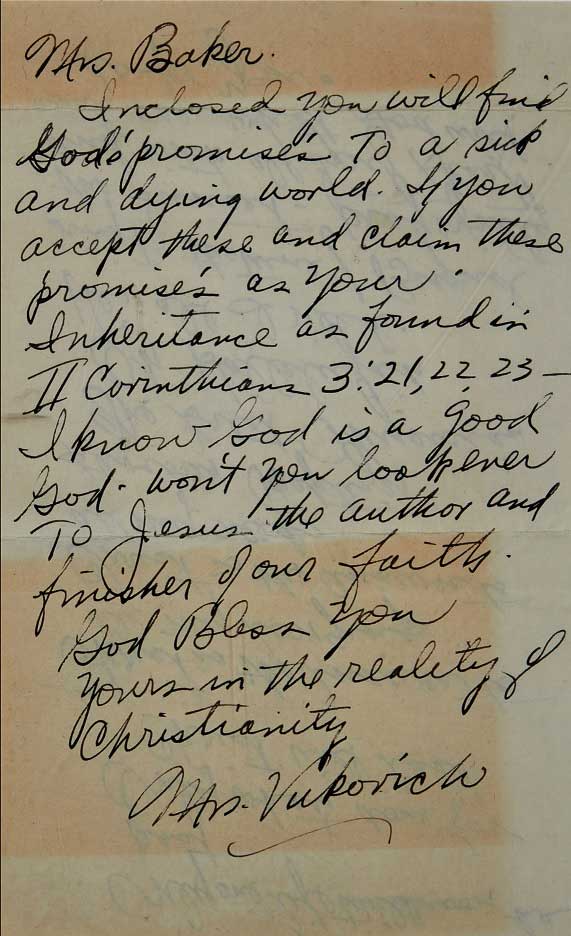 Mrs. Baker.
Inclosed you will find
God's promise's To a sick
and dying world. If you
accept these and claim these
promise's as your
Inheritance as found in
II Corinthians 3:21, 22 23 –
I know God is a good
God. won't you look ever
To Jesus the author and
finisher of our faith.
God Bless you
yours in the reality of
Christianity
Mrs. Vukovich